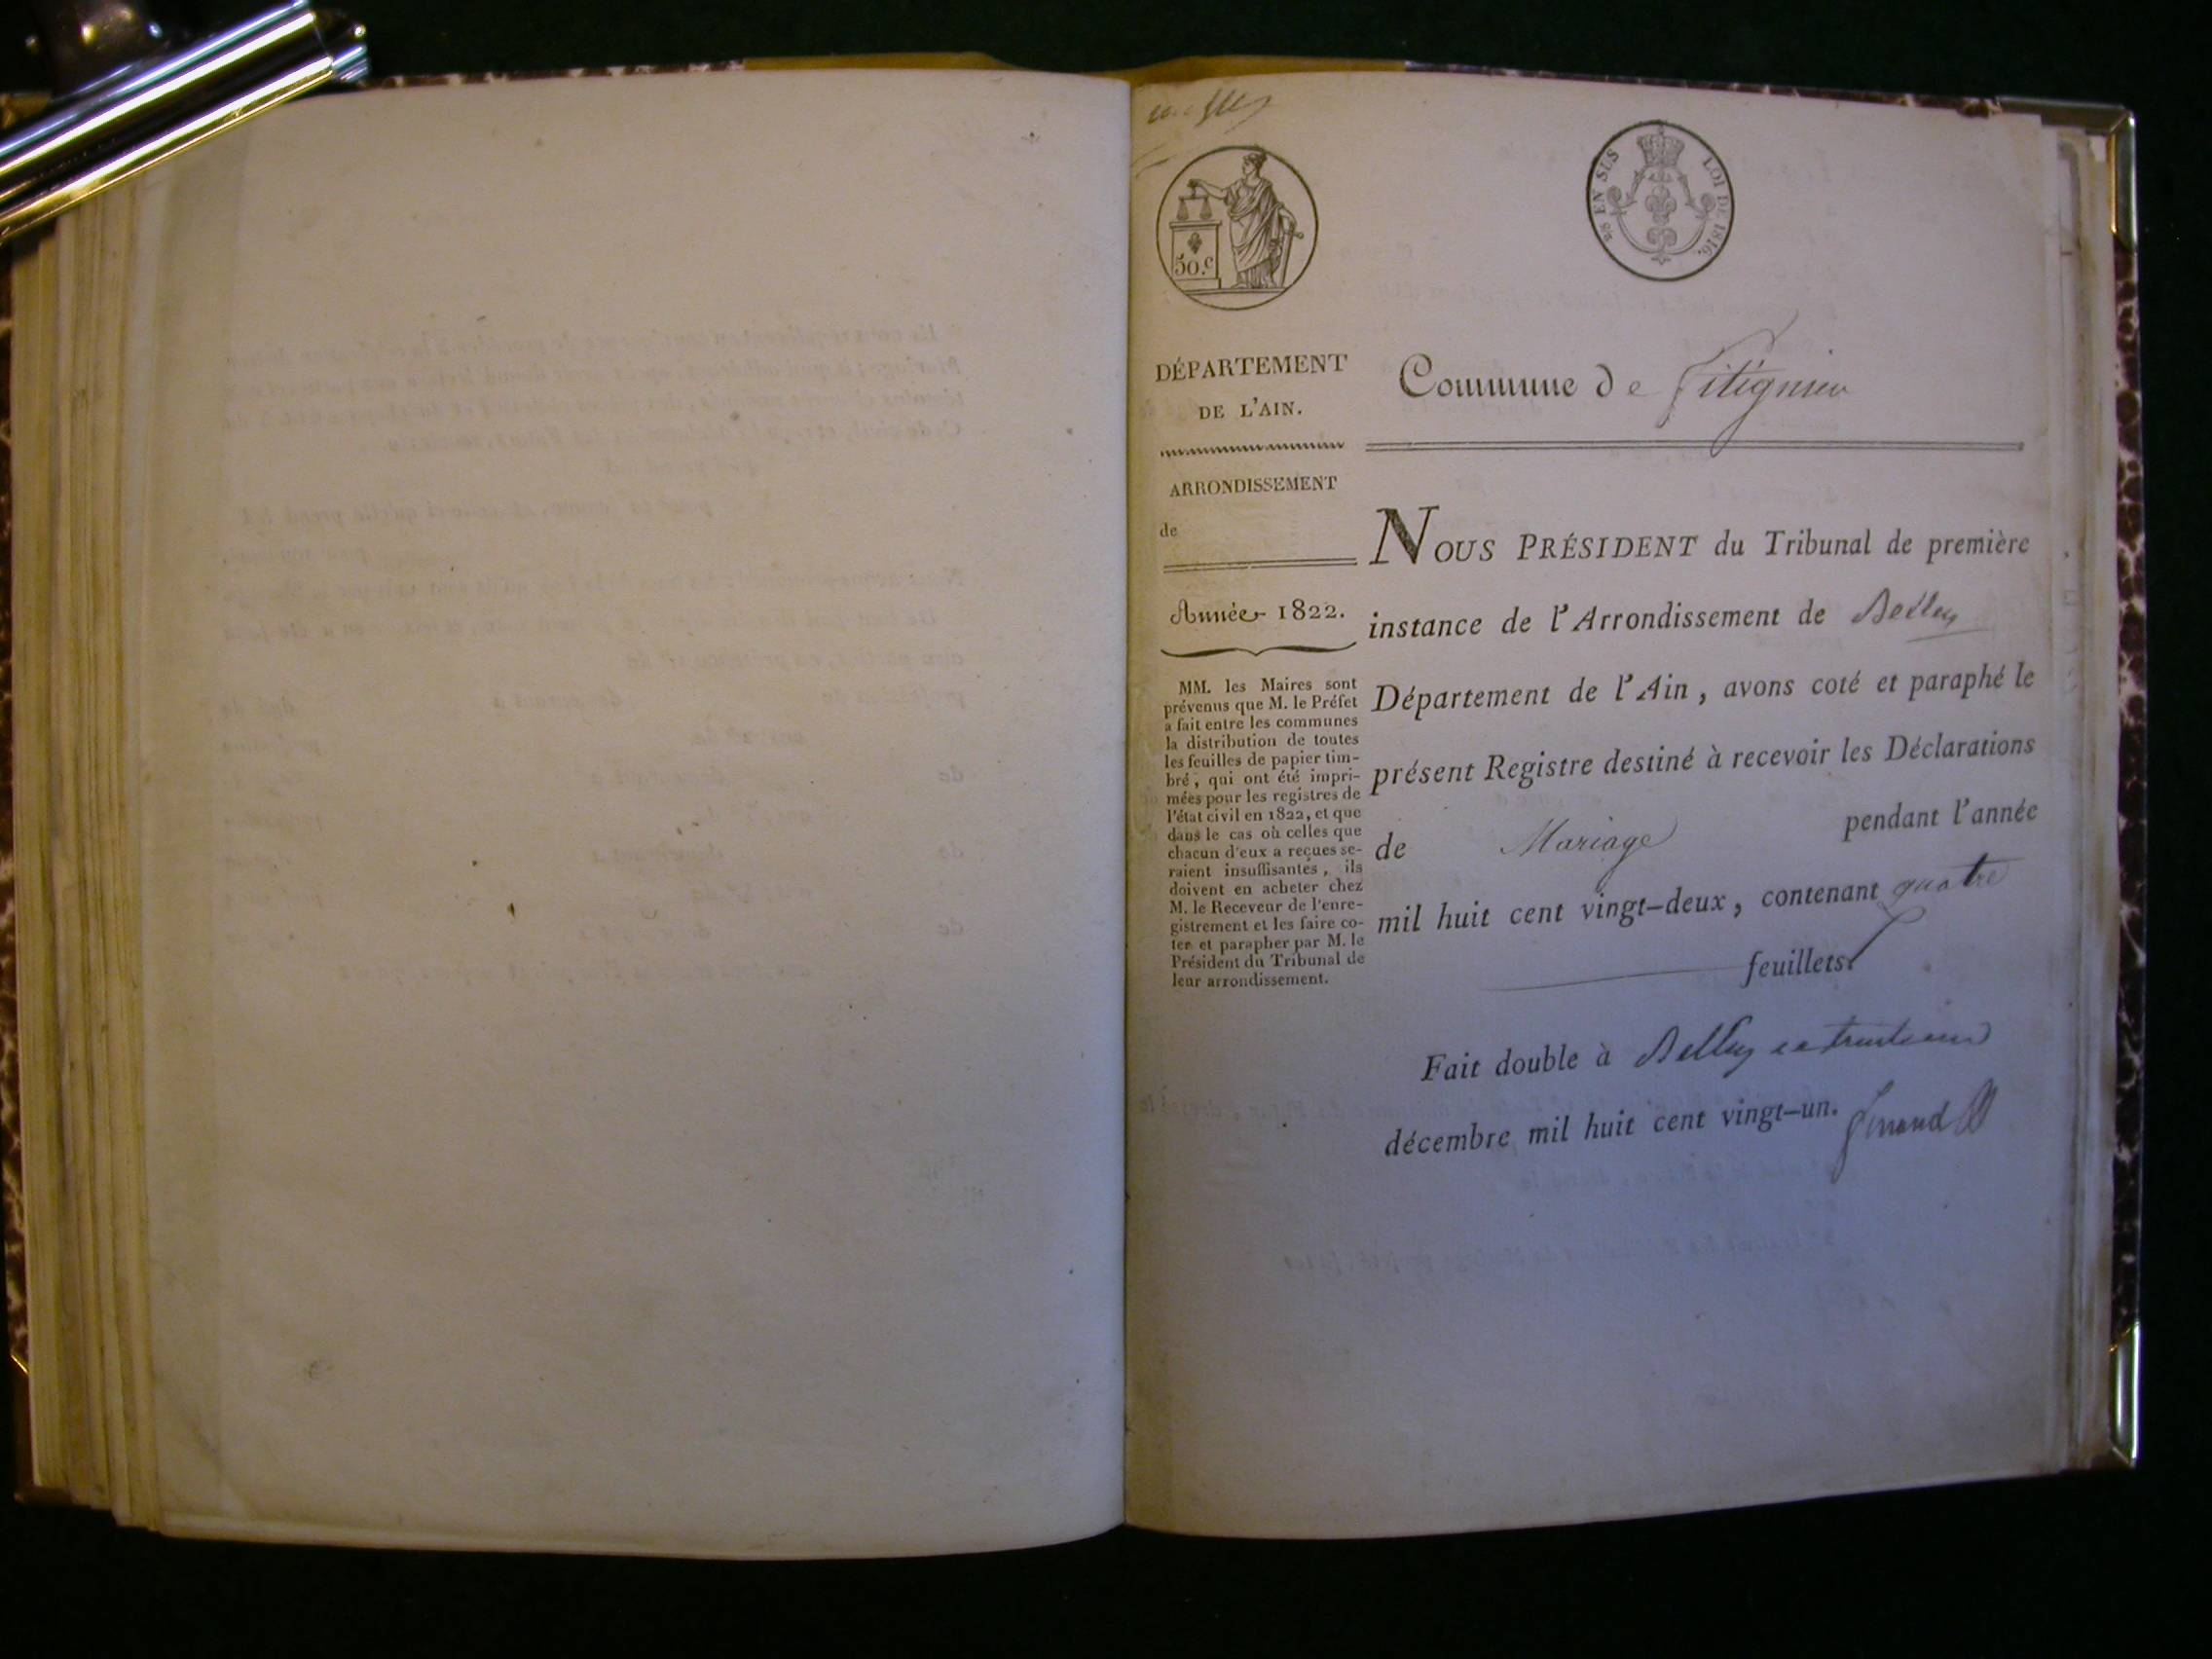 50.c
EN SUS
LOI DE 1816.
DÉPARTEMENT
DE L'AIN.
ARRONDISSEMENT
de
Année 1822.
MM. les Maires sont
prévenus que M. le Préfet
a fait entre les communes
la distribution de toutes
les feuilles de papier tim-
bré, qui ont été impri-
mées pour les registres de
l'état civil en 1822, et que
dans le cas où celles que
chacun d'eux a reçues se-
raient insuffisantes, ils
doivent en acheter chez
M. le Receveur de l'enre-
gistrement et les faire co-
ter et parapher par M. le
Président du Tribunal de
leur arrondissement.
Commune de
NOUS PRÉSIDENT du Tribunal de première
instance de l'Arrondissement de Belley
Département de l'Ain, avons coté et paraphé le
présent Registre destiné à recevoir les Déclarations
de Mariage pendant l'année
mil huit cent vingt-deux, contenant quatre
feuillets.
Fait double à Belley
décembre mil huit cent vingt-un.